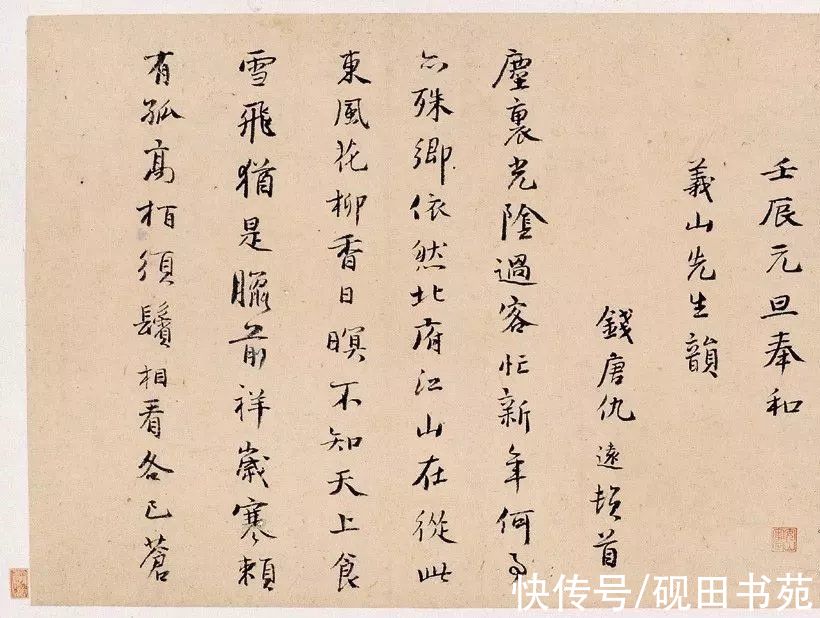 壬辰元旦奉和
義山先生韻
錢唐仇遠頓首
塵裏光陰過客忙新年何事
亦殊鄉依然北府江山在從此
東風花柳香日暝不知天上食
雪飛猶是臘前祥歲寒賴
有孤高栢須鬢相看各已蒼
快传号/砚田书苑